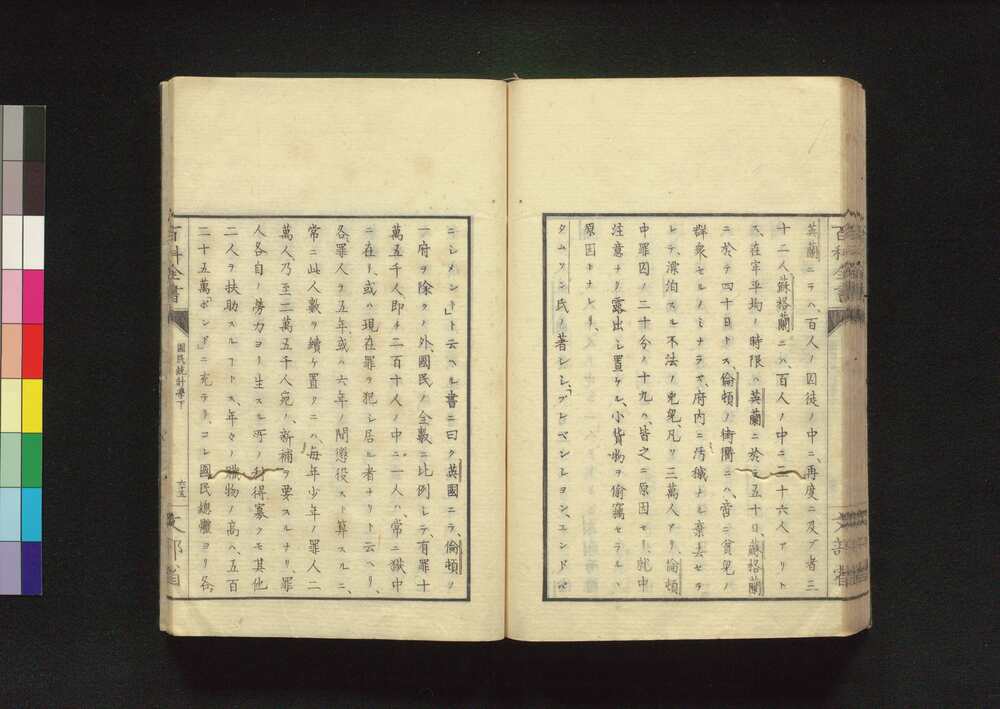 英蘭ニテハ、百人ノ囚徒ノ中ニ、再度ニ及ブ者三
十二人蘇格蘭ニハ、百人ノ中ニ、二十六人アリト
ス、在牢平均ノ時限ハ英蘭ニ於テ五十日、蘇格蘭
ニ於テ四十日トス、倫頓ノ街衢ニハ、啻ニ貧兒ノ
群衆セルノミナラズ、府内ニ汚穢ナル棄去セラ
レテ、漂泊スル不法ノ兒凡ソ三萬人アリ、倫頓
中罪囚ノ二十分ノ十九ハ、皆之ニ原因セリ、就中
注意ナク露出シ置ケル、小貨物ヲ偷竊セラルヽ
原因トナレリ、
タムソン氏ノ著レシ、「プヒベンション、エンドペ
ニシメント」ト云ヘル書ニ曰ク英國ニテ、倫頓ノ
一府ヲ除クノ外、國民ノ全數ニ比例シテ、有罪十
萬五千人即チ二百十人ノ中ニ一人ハ、常ニ獄中
ニ在リ、或ハ現在罪ヲ犯シ居ル者ナリト云ヘリ、
各罪人ヲ五年、或ハ六年ノ間懲役スト算スルニ、
常ニ此人數ヲ續ケ置クニハ、每年少年ノ罪人二
萬人、乃至二萬五千人宛ノ、新補ヲ要スルナリ、罪
人各自ノ勞力ヨリ生スル所ノ利得寡クモ其他
二人ヲ扶助スル
トス、年々贓物ノ高ハ、五百
二十五萬「ポンド」ニ充テリ、コレ國民總體ヨリ各
百科全書
國民統計學下
六十五
文部省